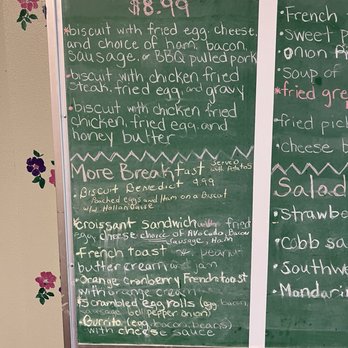 $8.99
*biscuit with fried egg, cheese,
and choice of ham, bacon,
sausage, or BBQ pulled pork
•biscuit with chicken fried
steak, fried egg, and gravy
•biscuit with chicken fried
chicken, fried egg, and
honey butter
More Breakfast Served with Potatos
Biscuit Benedict 9.99
Poached eggs and Ham on a Biscuit
w/
Croissant Sandwich with fried
egg, cheese, choice of Avocado, Bacon
Sausage, Ham
French toast peanut
butter cream and jam
•Orange Cranberry French toast
with orange cream
•Scrambled egg rolls (egg, bacon,
sausage, bell pepper, onion)
•Burrito (egg, bacon, beans)
with cheese sauce
•French
•Sweet p
•onion
•soup of
*fried gre
•fried pick
•cheese b
Salad
•Strawbe
•Cobb sa
•Southwe
•Mandarin